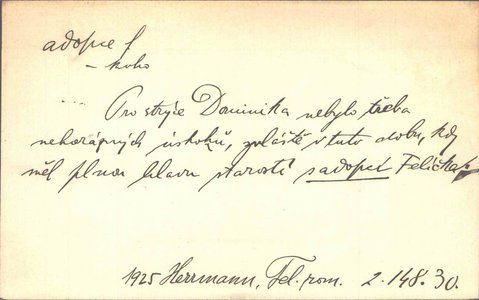 adopce f
– koho
Pro strýce Dominika nebylo třeba
nehorázných úskoků, zvláště v tuto dobu, kdy
měl plnou hlavu starostí s adopcí Felíčka.
1925 Herrmann, Fel. rom. 2. 148. 30.